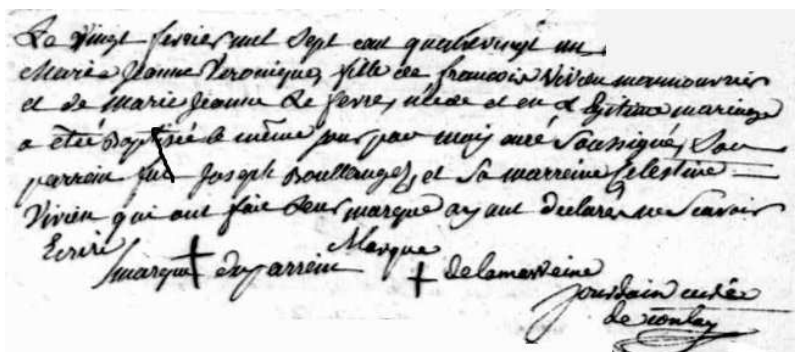 Le vingt fevrier mil sept cent quatrevingt un
Marie Jeanne Veronique, fille de francois Vivien manouvrier
et de marie jeanne Le fevre, née de et en Legitime mariage
a etée Baptisée le même jour par moy curé Soussigné, Son
parrein fut Joseph Boullanger, et Sa marreine Celestine
Vivien qui ont fait Leur marque ayant declaré ne Scavoir
Ecrire
marque du parrein Marque de la marreine
jourdain curé
de